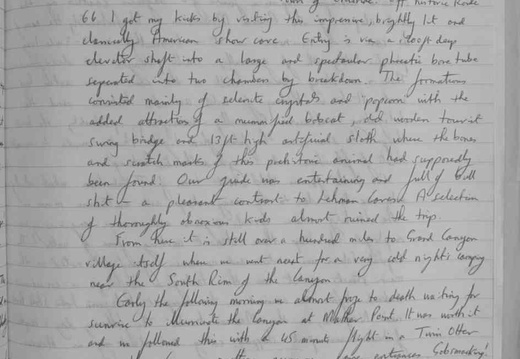 off historic Route
66 I got my kicks by visiting this impressive, brightly lit and
classically American show cave. Entry is via a 200ft deep
elevator shaft into a large and spectacular phreatic bore tube
separated into two chambers by breakdown. The formations
consisted mainly of selenite crystals and popcorn with the
added attraction of a mummified bobcat, old wooden tourist
swing bridge and 13ft high artificial sloth where the bones
and scratch marks of this prehistoric animal had supposedly
been found. Our guide was entertaining and full of bull
shit - a pleasant contrast to Lehman Caves. A selection
of thoroughly obnoxious kids almost ruined the trip.
From here it is still over a hundred miles to Grand Canyon
village itself where we went next for a very cold night's camping
near the South Rim of the Canyon.
Early the following morning we almost froze to death waiting for
sunrise to illuminate the Canyon at Mather Point. It was worth it
and we followed this with a 45 minute flight in a Twin Otter
entrances Gobsmacking!